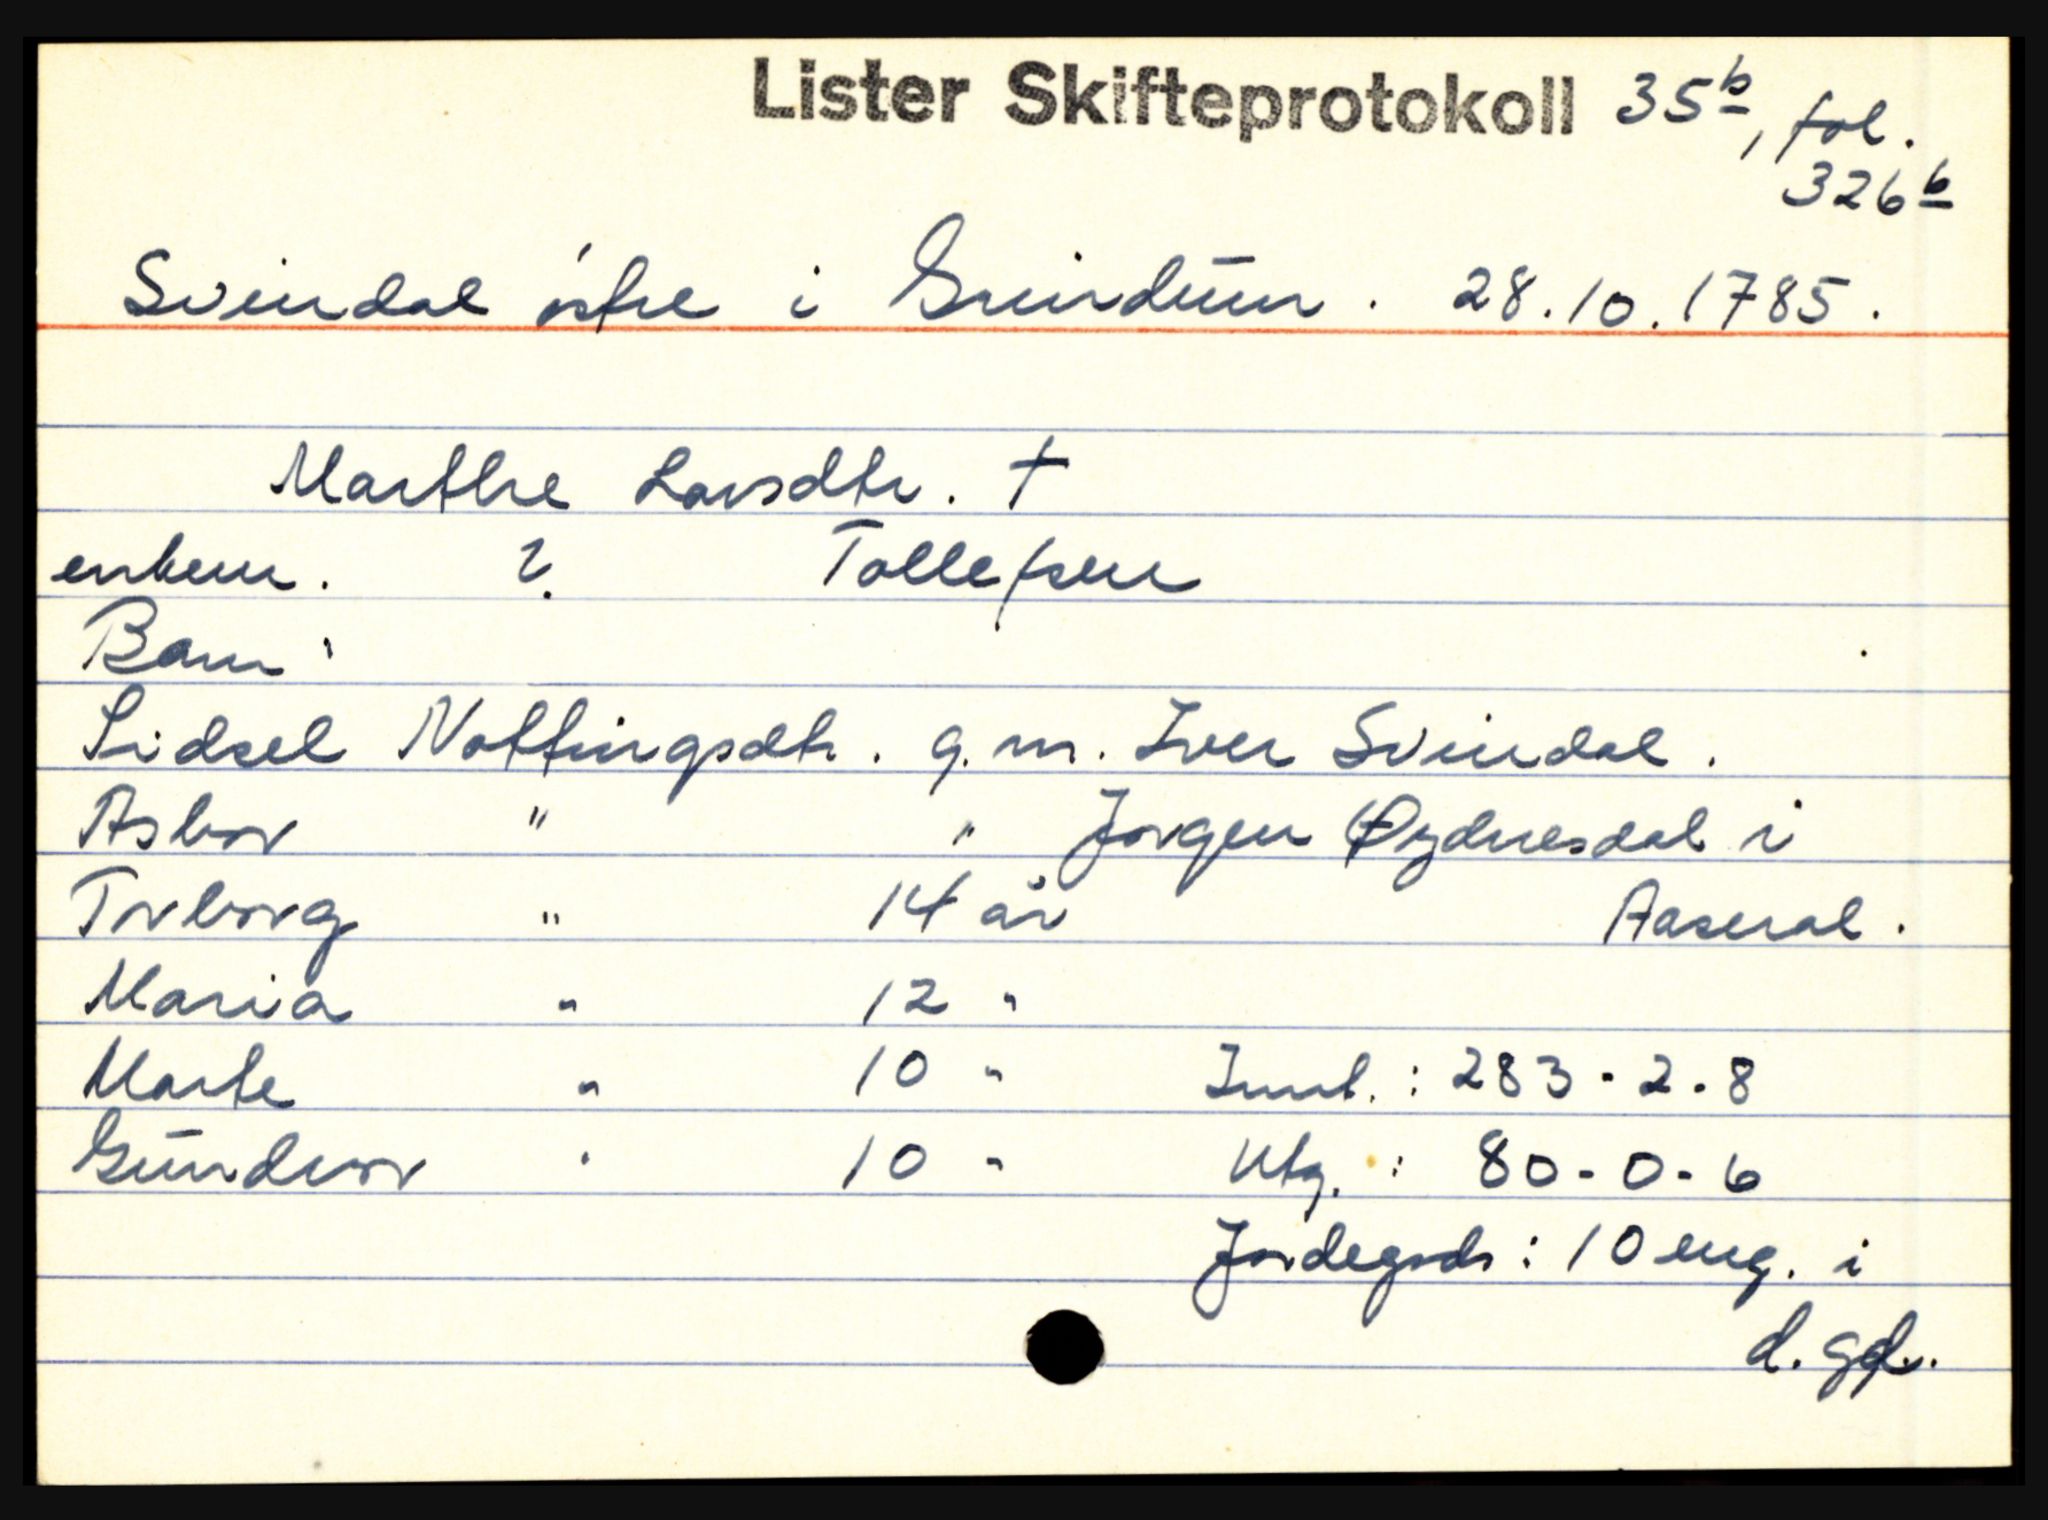 Lister Skifteprotokoll 35b, fol.
326b
Svindal østre i Grindum. 28.10.1785.
Marthe Larsdtr. †
enkem. ? Tollefsen
Barn:
Sidsel Nottingsdtr. g.m. Iver Svindal.
Asbor " " Jørgen Øydnesdal i
Torborg " 14 år Aaseral.
Maria " 12 "
Marte " 10 "
Innt.: 283-2-8
Gundvor " 10 "
Utg.: 80-0-6
Jordegods: 10 eng. i
d. gd.